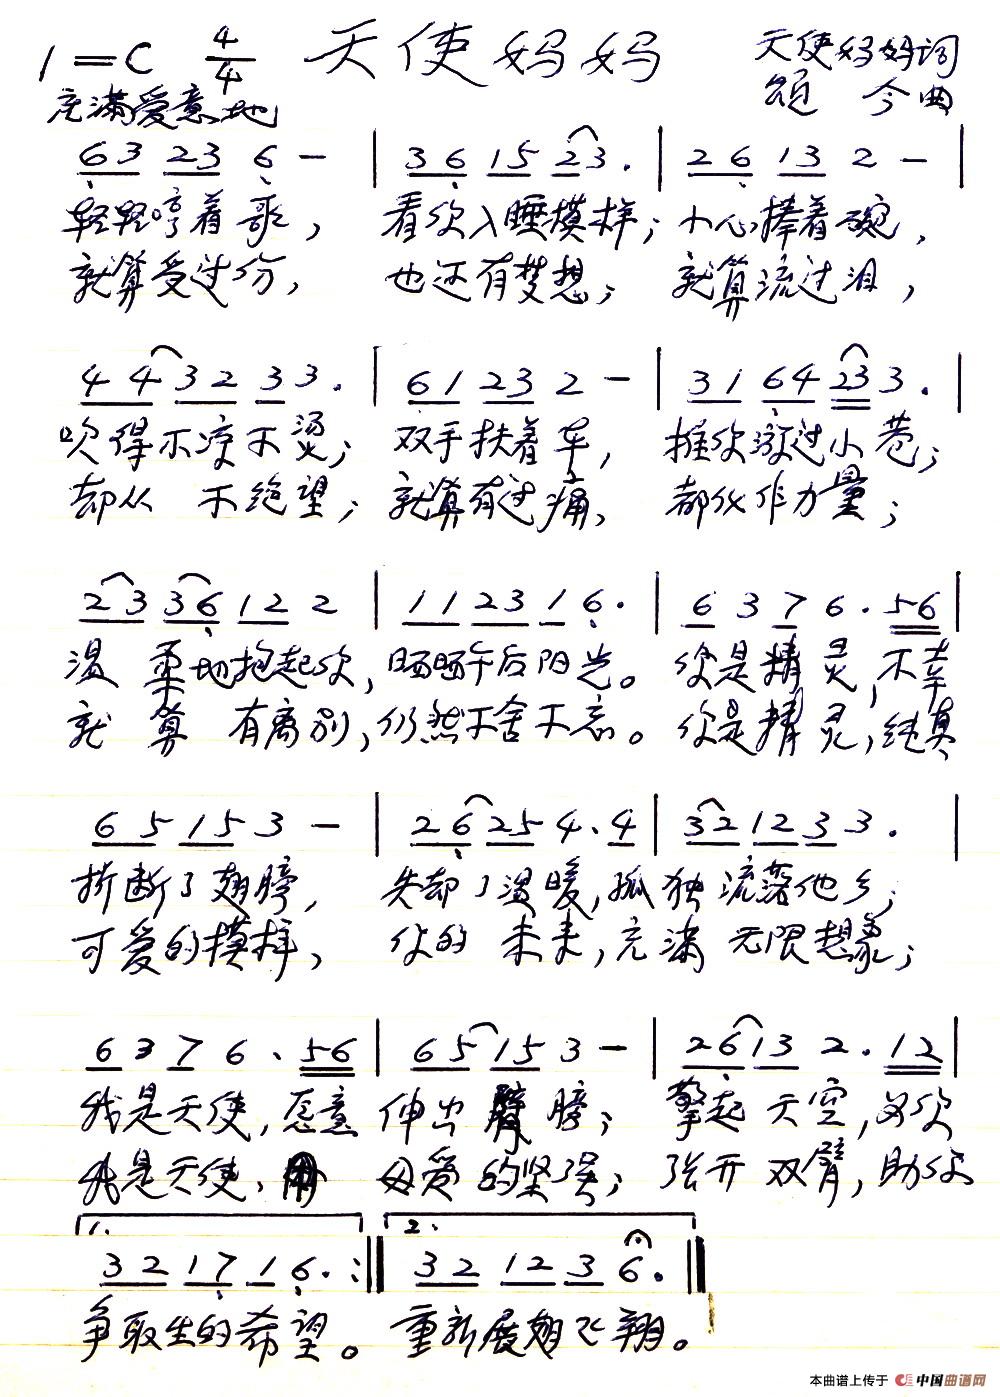 1=C 4/4 天使妈妈 天使妈妈词
充满爱意地 颂今曲
63 23 6 — | 36 15 23. | 26 13 2 — |
轻轻哼着歌， 看你入睡模样； 小心捧着碗，
就算受过伤， 也还有梦想； 就算流过泪，
44 32 33. | 61 23 2 — | 31 64 23 3. |
吹得不凉不烫； 双手扶着车， 推你漫过小巷；
却从 不绝望； 就算有过痛， 都化作力量；
23 36 12 2 | 11 23 1 6. | 6 3 7 6. 56 |
温 柔地抱起你，晒晒午后阳光。 你是精灵，不幸
就 算 有离别，仍然不舍不忘。 你是精灵，纯真
65 15 3 — | 26 25 4. 4 | 32 12 3 3. |
折断了翅膀， 失却了温暖，孤独流落他乡；
可爱的模样， 你的 未来，充满 无限想象；
6 3 7 6. 56 | 65 15 3 — | 26 13 2. 12 |
我是天使，愿意 伸出臂膀； 擎起天空，为你
我是天使，用 母爱的坚强； 张开双臂，助你
1. 2.
32 17 1 6. :‖ 32 12 3 6. ‖
争取生的希望。 重新展翅飞翔。
本曲谱上传于 中国曲谱网